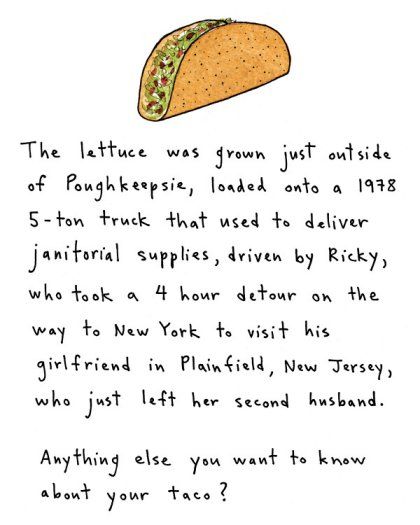 The lettuce was grown just outside
of Poughkeepsie, loaded onto a 1978
5-ton truck that used to deliver
janitorial supplies, driven by Ricky,
who took a 4 hour detour on the
way to New York to visit his
girlfriend in Plainfield, New Jersey,
who just left her second husband.
Anything else you want to know
about your taco?